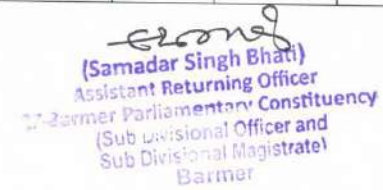 (Samadar Singh Bhati)
Assistant Returning Officer
Barmer Parliamentary Constituency
(Sub Divisional Officer and
Sub Divisional Magistrate)
Barmer